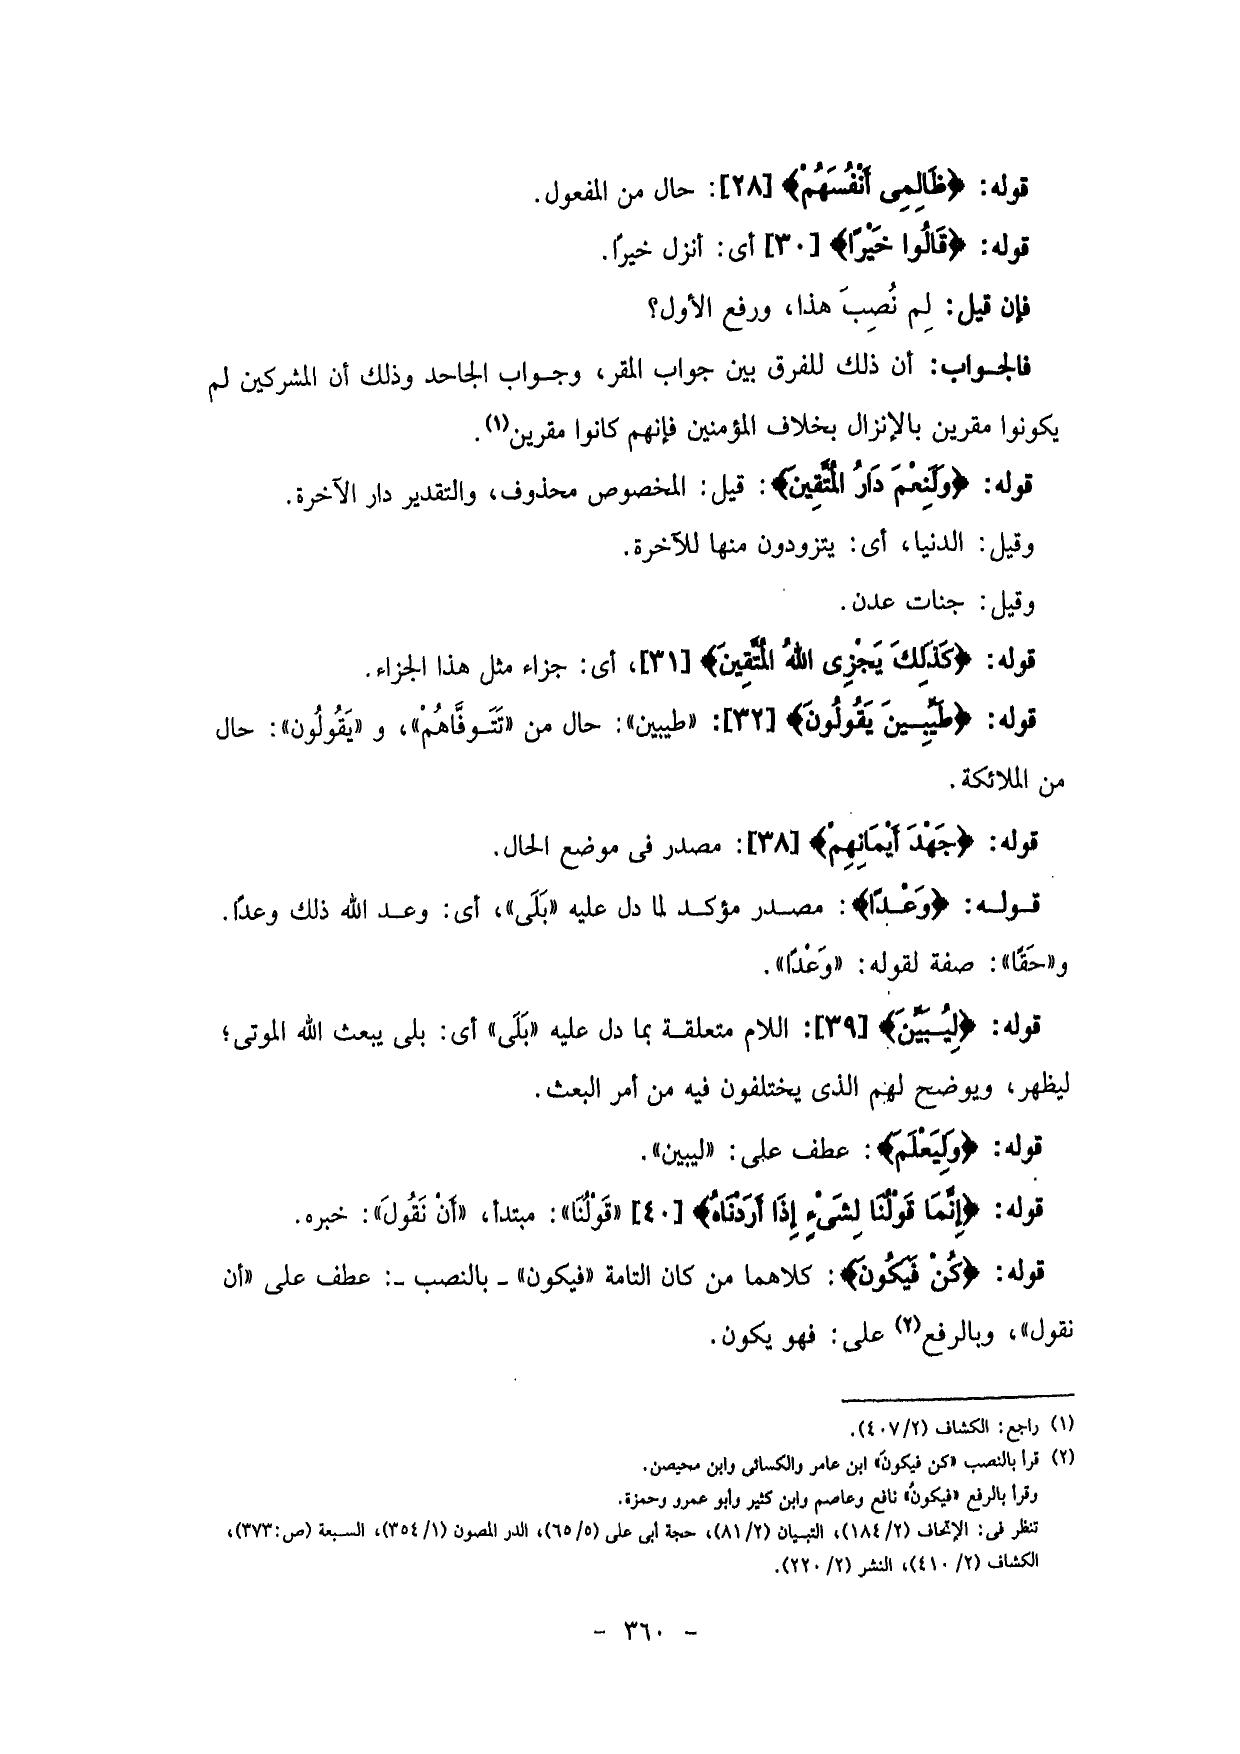 قوله: ﴿ظَالِمِى أَنْفُسَهُمْ﴾ [٢٨]: حال من المفعول.
قوله: ﴿قَالُوا خَيْرًا﴾ [٣٠] أى: أنزل خيرًا.
فإن قيل: لِم نُصِبَ هذا، ورفع الأول؟
فالجـواب: أن ذلك للفرق بين جواب المقر، وجـواب الجاحد وذلك أن المشركين لم
يكونوا مقرين بالإنزال بخلاف المؤمنين فإنهم كانوا مقرين(١).
قوله: ﴿وَلَنِعْمَ دَارُ الْمُتَّقِينَ﴾: قيل: المخصوص محذوف، والتقدير دار الآخرة.
وقيل: الدنيا، أى: يتزودون منها للآخرة.
وقيل: جنات عدن.
قوله: ﴿كَذَلِكَ يَجْزِى اللهُ الْمُتَّقِينَ﴾ [٣١]، أى: جزاء مثل هذا الجزاء.
قوله: ﴿طَيِّبِـينَ يَقُولُونَ﴾ [٣٢]: «طيبين»: حال من «تَتَـوفَّاهُمْ»، و «يَقُولُون»: حال
من الملائكة.
قوله: ﴿جَهْدَ أَيْمَانِهِمْ﴾ [٣٨]: مصدر فى موضع الحال.
قـولـه: ﴿وَعْـدًا﴾: مصـدر مؤكـد لما دل عليه «بَلَى»، أى: وعـد الله ذلك وعدًا.
و«حَقًا»: صفة لقوله: «وَعْدًا».
قوله: ﴿لِيُـبَيِّنَ﴾ [٣٩]: اللام متعلقـة بما دل عليه «بَلَى» أى: بلى يبعث الله الموتى؛
ليظهر، ويوضح لهم الذى يختلفون فيه من أمر البعث.
قوله: ﴿وَلِيَعْلَمَ﴾: عطف على: «ليبين».
قوله: ﴿إِنَّمَا قَوْلُنَا لِشَىْءٍ إِذَا أَرَدْنَاهُ﴾ [٤٠] «قَوْلُنَا»: مبتدأ، «أَنْ نَقُولَ»: خبره.
قوله: ﴿كُنْ فَيَكُونَ﴾: كلاهما من كان التامة «فيكون» ـ بالنصب ـ: عطف على «أن
نقول»، وبالرفع(٢) على: فهو يكون.
(١) راجع: الكشاف (٤٠٧/٢).
(٢) قرأ بالنصب «كن فيكونَ» ابن عامر والكسائى وابن محيصن.
وقرأ بالرفع «فيكونُ» نافع وعاصم وابن كثير وأبو عمرو وحمزة.
تنظر فى: الإتحاف (١٨٤/٢)، التبـيان (٨١/٢)، حجة أبى على (٦٥/٥)، الدر المصون (٣٥٤/١)، السـبعة (ص:٣٧٣)،
الكشاف (٤١٠/٢)، النشر (٢٢٠/٢).
- ٣٦٠ -